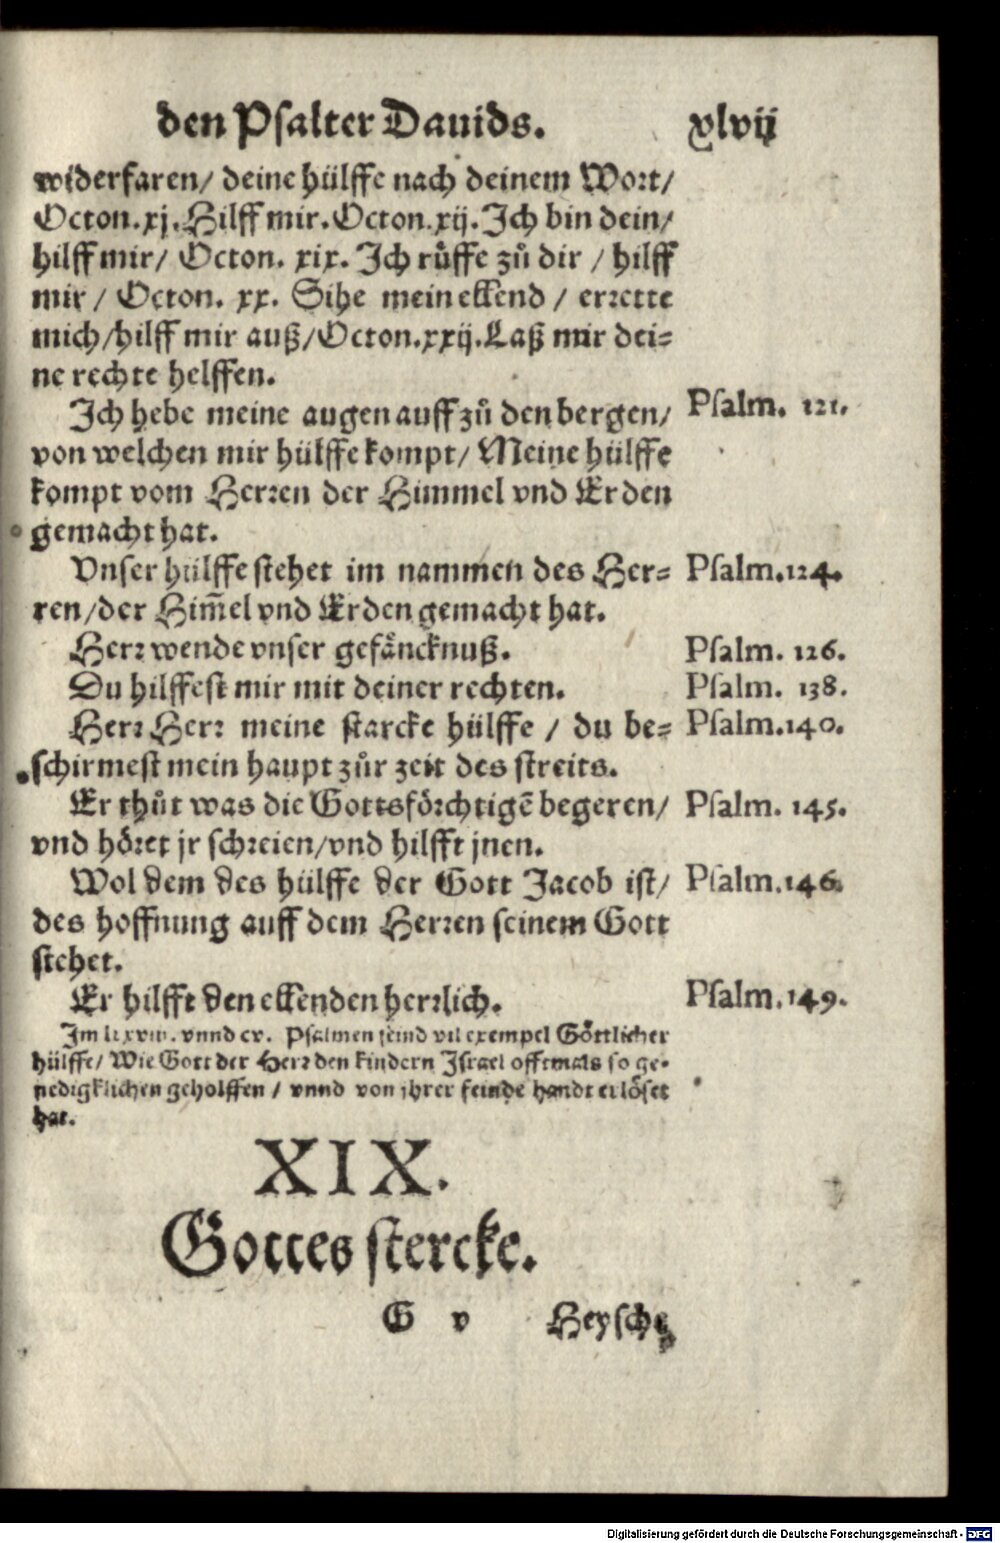 den Psalter Dauids. xlvij
widerfaren/ deine hülffe nach deinem Wort/
Octon.xj. Hilff mir. Octon.xij. Ich bin dein/
hilff mir/ Octon. xix. Ich růffe zů dir / hilff
mir / Octon. xx. Sihe mein ellend / errette
mich/hilff mir auß/Octon.xxij. Laß mir dei=
ne rechte helffen.
Ich hebe meine augen auff zů den bergen/ Psalm. 121.
von welchen mir hülffe kompt/ Meine hülffe
kompt vom Herren der Himmel vnd Erden
gemacht hat.
Vnser hülffe stehet im nammen des Her= Psalm.124.
ren/der Him̃el vnd Erden gemacht hat.
Herr wende vnser gefäncknuß. Psalm. 126.
Du hilffest mir mit deiner rechten. Psalm. 138.
Herr Herr meine starcke hülffe / du be= Psalm.140.
schirmest mein haupt zůr zeit des streits.
Er thůt was die Gottsförchtigẽ begeren/ Psalm. 145.
vnd höret jr schreien/vnd hilfft jnen.
Wol dem des hülffe der Gott Jacob ist/ Psalm.146.
des hoffnung auff dem Herren seinem Gott
stehet.
Er hilfft den ellenden herrlich. Psalm.149.
Im lxxviij. vnnd cv. Psalmen seind vil exempel Göttlicher
hülffe/ Wie Gott der Herr den kindern Israel offtmals so ge=
nedigklichen geholffen / vnnd von jhrer feinde handt erlöset
hat.
XIX.
Gottes stercke.
G v Heysche
Digitalisierung gefördert durch die Deutsche Forschungsgemeinschaft - DFG